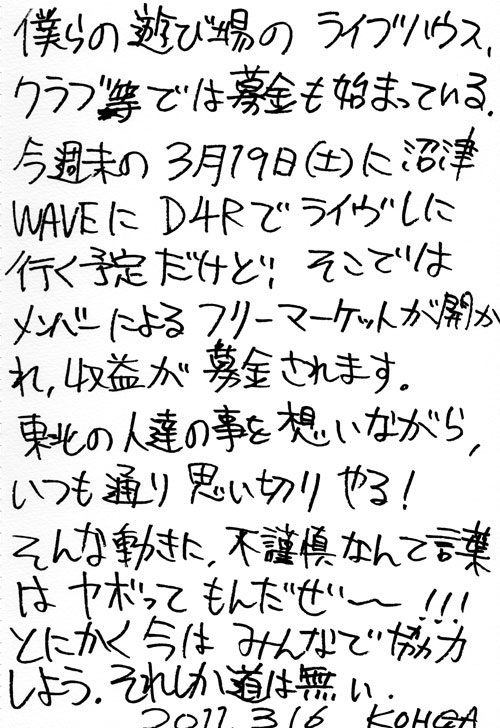 僕らの遊び場の ライブハウス、
クラブ等では募金も始まっている。
今週末の 3月19日(土)に沼津
WAVEに D4Rでライヴしに
行く予定だけど、そこでは
メンバーによる フリーマーケットが開か
れ、収益が募金されます。
東北の人達の事を想いながら、
いつも通り 思い切り やる!
そんな動きに、不謹慎なんて言葉
は ヤボって もんだぜ〜 !!!
とにかく今は みんなで協力
しよう。それしか道は無い。
2011.3.16 KOHGA